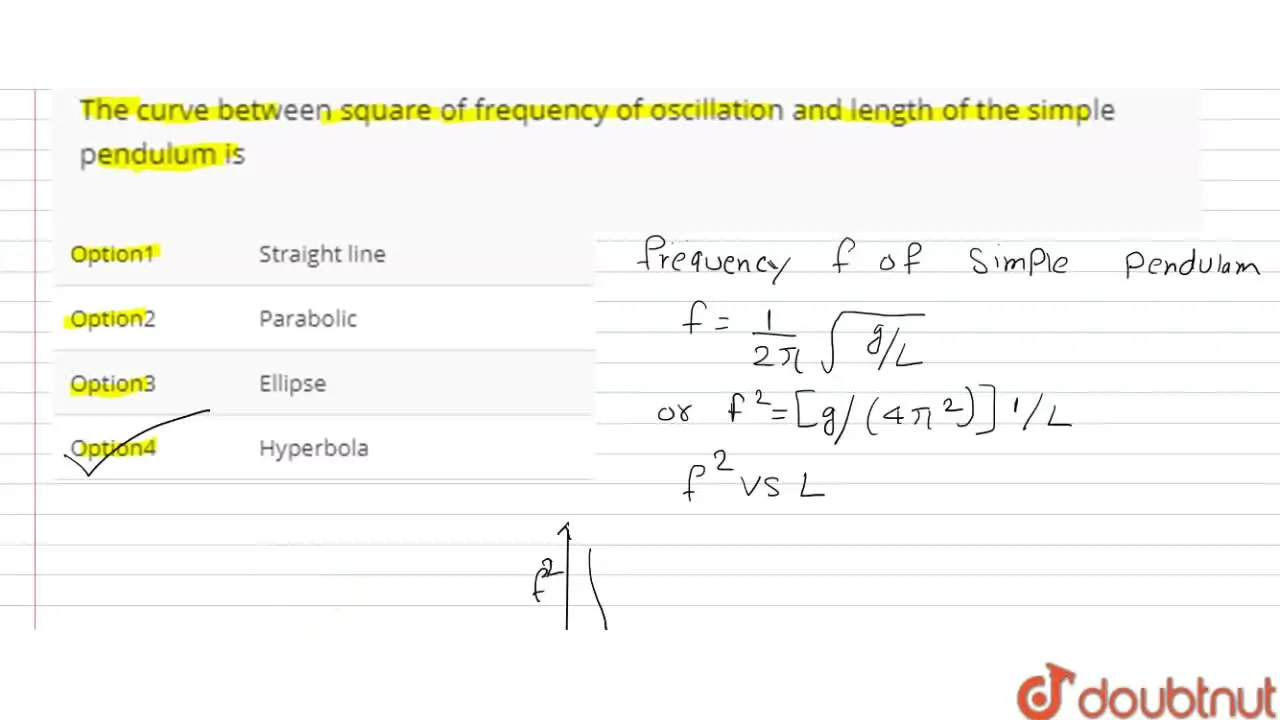 The curve between square of frequency of oscillation and length of the simple
pendulum is
Option1 Straight line
Option2 Parabolic
Option3 Ellipse
Option4 Hyperbola
frequency f of simple pendulam
f = 1/2π √g/L
or f² = [g/(4π²)] 1/L
f² vs L
f²
doubtnut